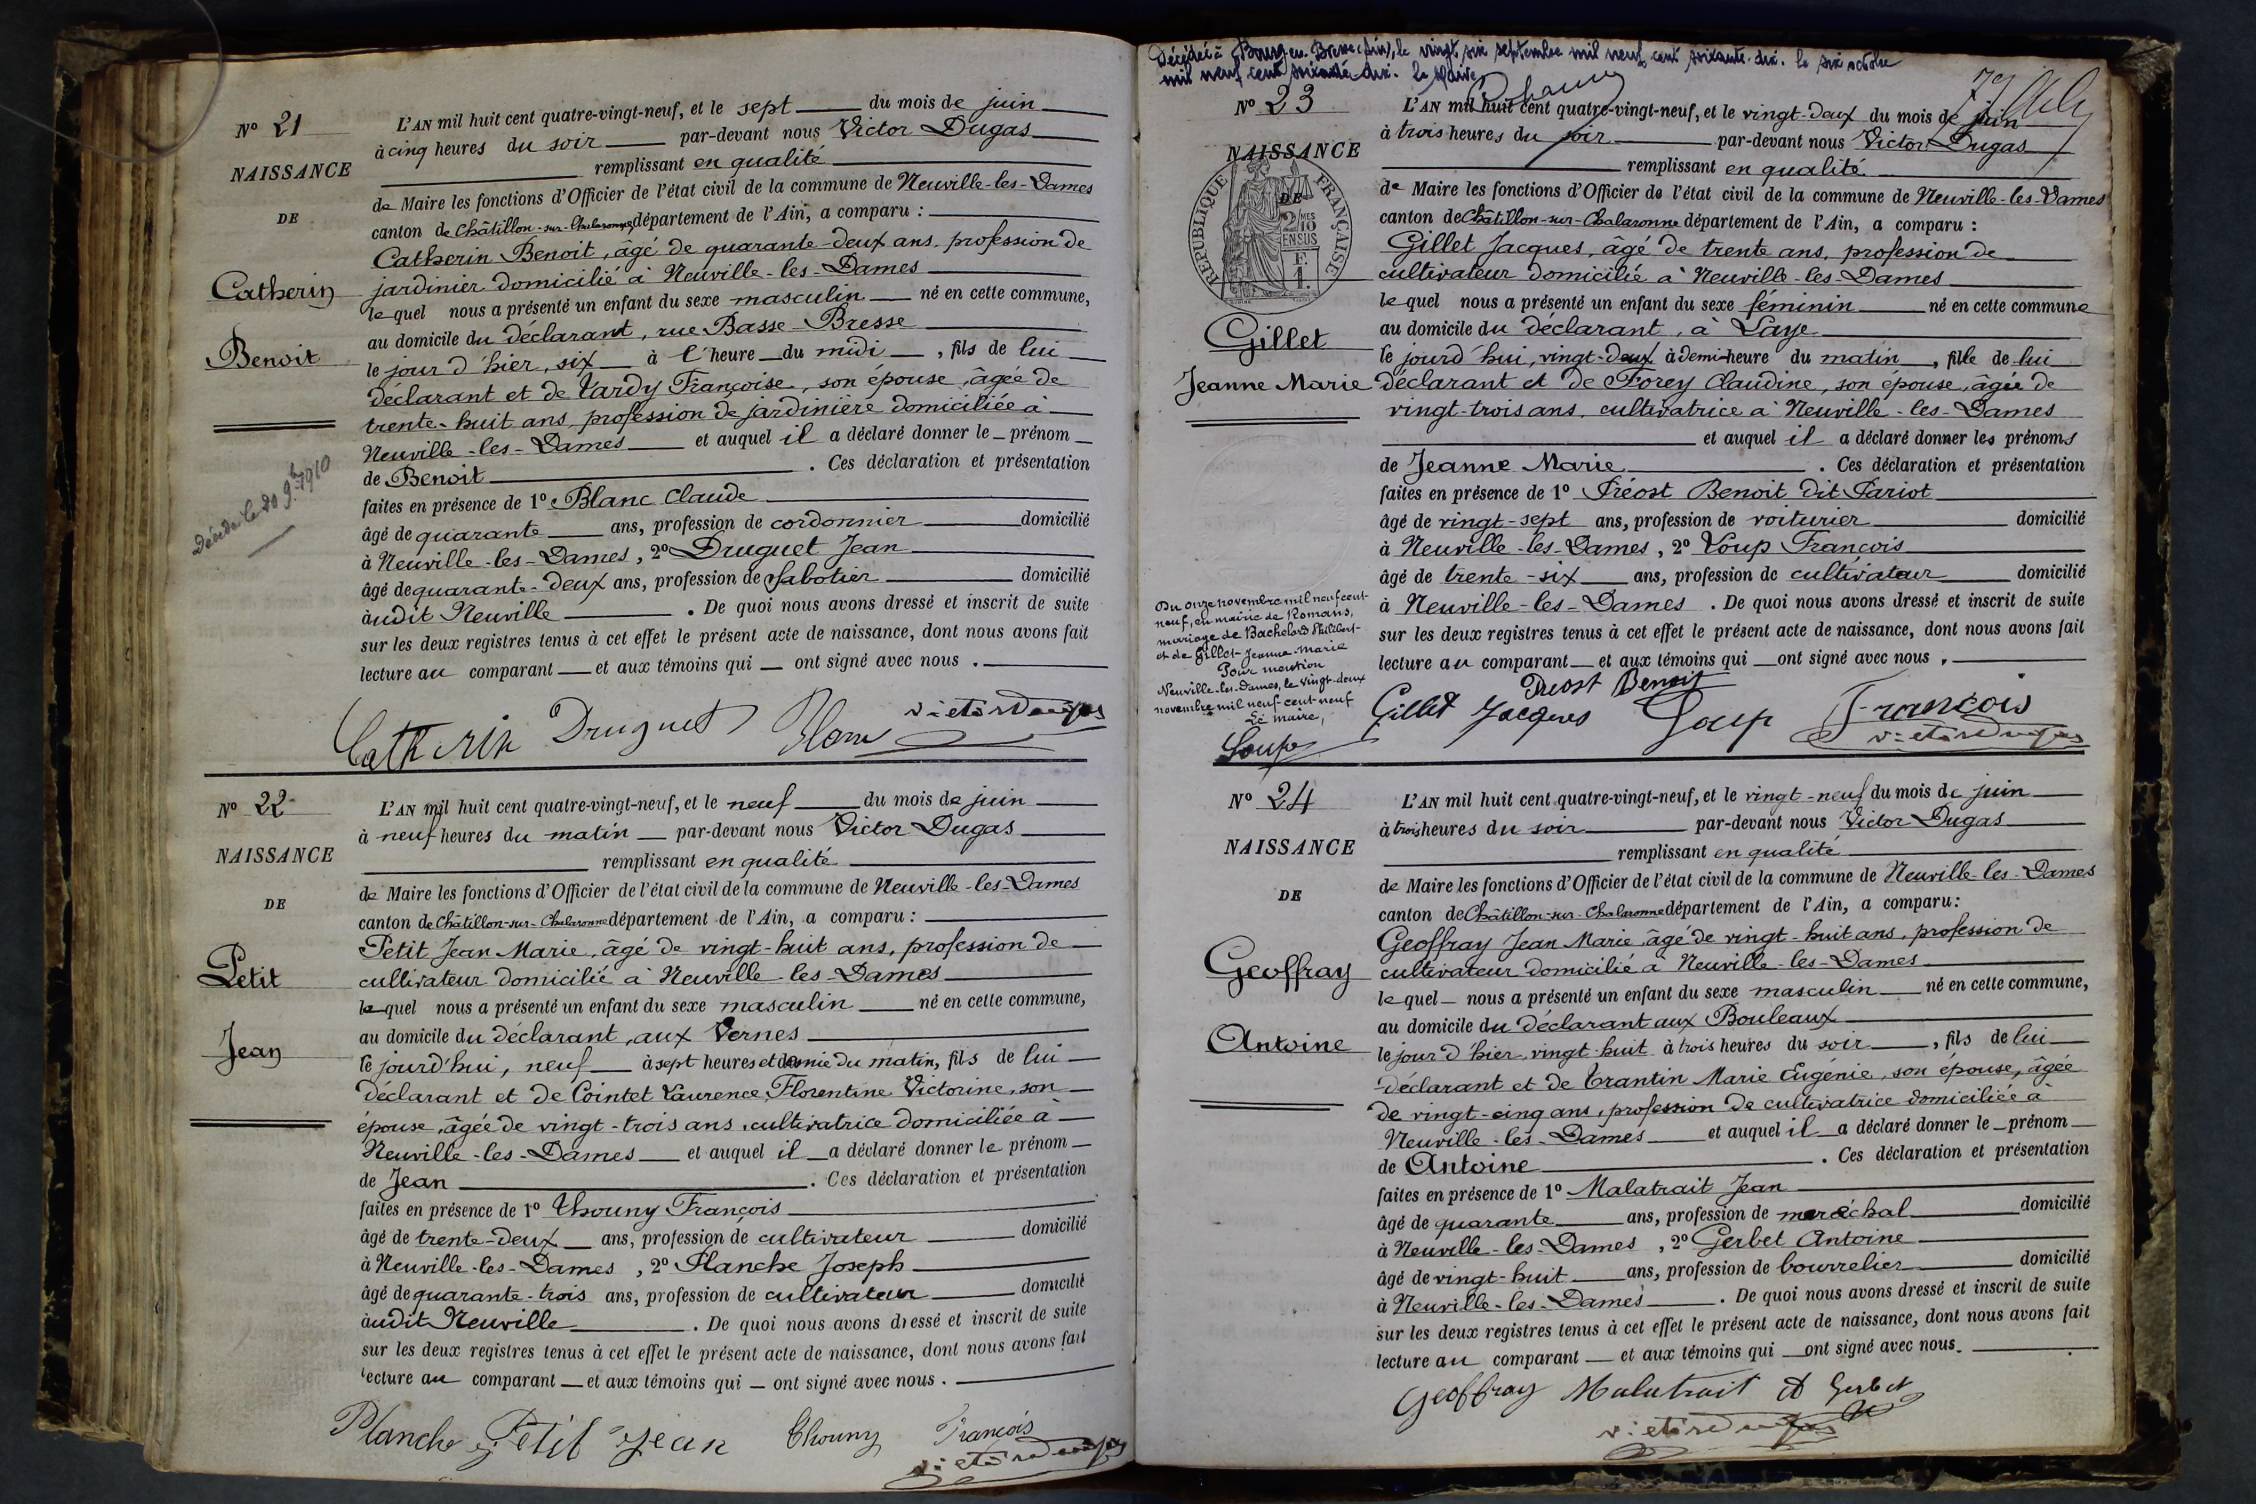 N° 21
NAISSANCE
DE
Catherin
Benoit
Décédé le 20 9bre 1910
L'AN mil huit cent quatre-vingt-neuf, et le sept du mois de juin
à cinq heures du soir par-devant nous Victor Dugas
remplissant en qualité
de Maire les fonctions d'Officier de l'état civil de la commune de Neuville-les-Dames
canton de Châtillon-sur-Chalaronne département de l'Ain, a comparu :
Catherin Benoit, âgé de quarante-deux ans, profession de
jardinier domicilié à Neuville-les-Dames
lequel nous a présenté un enfant du sexe masculin né en cette commune,
au domicile du déclarant, rue Basse-Bresse
le jour d'hier, six à l'heure du midi, fils de lui
déclarant et de Tardy Françoise, son épouse, âgée de
trente-huit ans, profession de jardinière domiciliée à
Neuville-les-Dames et auquel il a déclaré donner le prénom
de Benoit. Ces déclaration et présentation
faites en présence de 1° Blanc Claude
âgé de quarante ans, profession de cordonnier domicilié
à Neuville-les-Dames, 2° Druguet Jean
âgé de quarante-deux ans, profession de sabotier domicilié
àudit Neuville. De quoi nous avons dressé et inscrit de suite
sur les deux registres tenus à cet effet le présent acte de naissance, dont nous avons fait
lecture au comparant et aux témoins qui ont signé avec nous.
Catherin Druguet Blanc victor dugas
N° 22
NAISSANCE
DE
Petit
Jean
L'AN mil huit cent quatre-vingt-neuf, et le neuf du mois de juin
à neuf heures du matin par-devant nous Victor Dugas
remplissant en qualité
de Maire les fonctions d'Officier de l'état civil de la commune de Neuville-les-Dames
canton de Châtillon-sur-Chalaronne département de l'Ain, a comparu :
Petit Jean Marie, âgé de vingt-huit ans, profession de
cultivateur domicilié à Neuville-les-Dames
lequel nous a présenté un enfant du sexe masculin né en cette commune,
au domicile du déclarant, aux Vernes
le jourd'hui, neuf à sept heures et demie du matin, fils de lui
déclarant et de Cointet Laurence Florentine Victorine, son
épouse, âgée de vingt-trois ans, cultivatrice domiciliée à
Neuville-les-Dames et auquel il a déclaré donner le prénom
de Jean. Ces déclaration et présentation
faites en présence de 1° Chouny François
âgé de trente-deux ans, profession de cultivateur domicilié
à Neuville-les-Dames, 2° Planche Joseph
âgé de quarante-trois ans, profession de cultivateur domicilié
àudit Neuville. De quoi nous avons dressé et inscrit de suite
sur les deux registres tenus à cet effet le présent acte de naissance, dont nous avons fait
lecture au comparant et aux témoins qui ont signé avec nous.
Planche j Petit jean Chouny François victor dugas
Décédée à Bourg en Bresse (Ain), le vingt six septembre mil neuf cent soixante-dix. le six octobre
mil neuf cent soixante-dix. le Maire
N° 23
NAISSANCE
DE
RÉPUBLIQUE FRANÇAISE
2/10MES
EN SUS
F.
1.
Gillet
Jeanne Marie
Du onze novembre mil neuf cent
neuf, en mairie de Romans,
mariage de Bachelard Philibert
et de Gillet Jeanne-Marie
Pour mention
Neuville-les-Dames, le vingt-deux
novembre mil neuf cent neuf
Le maire,
Loup
L'AN mil huit cent quatre-vingt-neuf, et le vingt-deux du mois de juin
à trois heures du soir par-devant nous Victor Dugas
remplissant en qualité
de Maire les fonctions d'Officier de l'état civil de la commune de Neuville-les-Dames
canton de Châtillon-sur-Chalaronne département de l'Ain, a comparu :
Gillet Jacques, âgé de trente ans, profession de
cultivateur domicilié à Neuville-les-Dames
lequel nous a présenté un enfant du sexe féminin né en cette commune
au domicile du déclarant, à Laye
le jourd'hui, vingt-deux à demi-heure du matin, fille de lui
déclarant et de Forey Claudine, son épouse, âgée de
vingt-trois ans, cultivatrice à Neuville-les-Dames
et auquel il a déclaré donner les prénoms
de Jeanne Marie. Ces déclaration et présentation
faites en présence de 1° Préost Benoit dit Pariot
âgé de vingt-sept ans, profession de voiturier domicilié
à Neuville-les-Dames, 2° Loup François
âgé de trente-six ans, profession de cultivateur domicilié
à Neuville-les-Dames. De quoi nous avons dressé et inscrit de suite
sur les deux registres tenus à cet effet le présent acte de naissance, dont nous avons fait
lecture au comparant et aux témoins qui ont signé avec nous.
Preost Benoit
Gillet Jacques Loup François
victor dugas
N° 24
NAISSANCE
DE
Geoffray
Antoine
L'AN mil huit cent quatre-vingt-neuf, et le vingt-neuf du mois de juin
à trois heures du soir par-devant nous Victor Dugas
remplissant en qualité
de Maire les fonctions d'Officier de l'état civil de la commune de Neuville-les-Dames
canton de Châtillon-sur-Chalaronne département de l'Ain, a comparu :
Geoffray Jean Marie, âgé de vingt-huit ans, profession de
cultivateur domicilié à Neuville-les-Dames
lequel nous a présenté un enfant du sexe masculin né en cette commune,
au domicile du déclarant aux Bouleaux
le jour d'hier, vingt-huit à trois heures du soir, fils de lui
déclarant et de Trantin Marie Eugénie, son épouse, âgée
de vingt-cinq ans, profession de cultivatrice domiciliée à
Neuville-les-Dames et auquel il a déclaré donner le prénom
de Antoine. Ces déclaration et présentation
faites en présence de 1° Malatrait Jean
âgé de quarante ans, profession de maréchal domicilié
à Neuville-les-Dames, 2° Gerbet Antoine
âgé de vingt-huit ans, profession de bourrelier domicilié
à Neuville-les-Dames. De quoi nous avons dressé et inscrit de suite
sur les deux registres tenus à cet effet le présent acte de naissance, dont nous avons fait
lecture au comparant et aux témoins qui ont signé avec nous.
Geoffray Malatrait A Gerbet
victor dugas